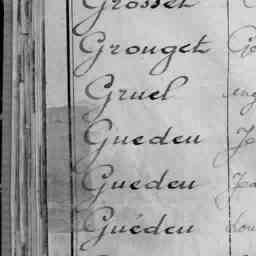 Grosset
Grouget
Gruel
Guedeu
Guedeu
Guédeu